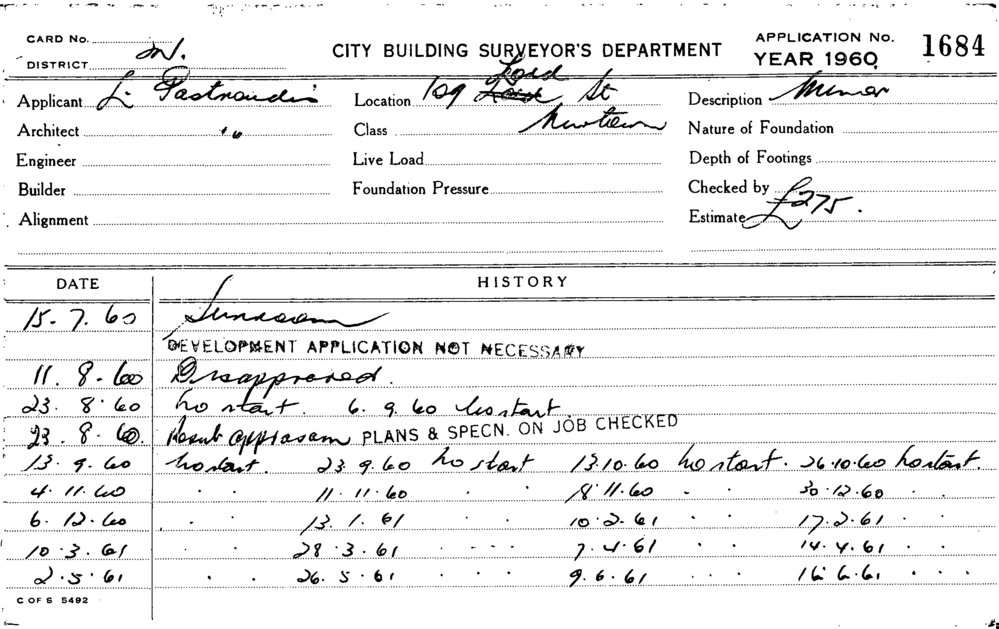 CARD No.
DISTRICT N.
CITY BUILDING SURVEYOR'S DEPARTMENT
APPLICATION No. 1684
YEAR 1960
Applicant L. Location 109 Lord St Description Minor
Architect " Class Newtown Nature of Foundation
Engineer Live Load Depth of Footings
Builder Foundation Pressure Checked by
Alignment Estimate £275.
DATE HISTORY
15. 7. 60 Sunroom
DEVELOPMENT APPLICATION NOT NECESSARY
11. 8. 60 Disapproved.
23. 8. 60 No start. 6. 9. 60 No start
23. 8. 60. PLANS & SPECN. ON JOB CHECKED
13. 9. 60 No start. 23 9. 60 No start 13.10.60 No start. 26.10.60 No start.
4. 11. 60 . . 11. 11. 60 . . 18. 11. 60 . . 30. 12. 60 . .
6. 12. 60 . . 13. 1. 61 . . 10. 2. 61 . . 17. 2. 61 . .
10. 3. 61 . . 28. 3. 61 . . . 7. 4. 61 . . . 14. 4. 61 . . .
2. 5. 61 . . 26. 5. 61 . . . 9. 6. 61 . . . 16. 6. 61 . . .
C OF S 5492